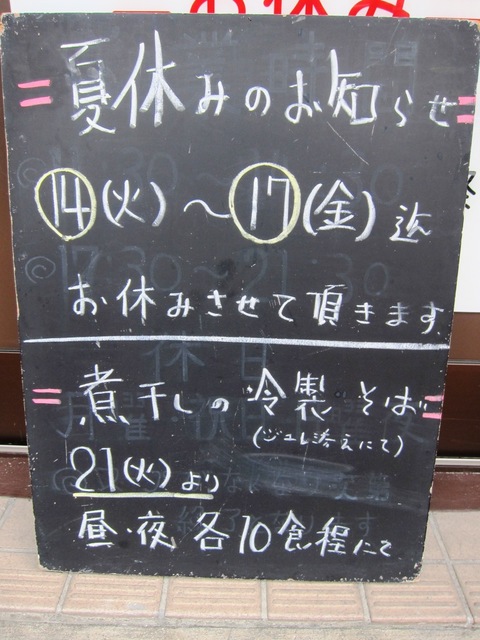 夏休みのお知らせ
14(火)～17(金)迄
お休みさせて頂きます
煮干しの冷製そば
(ジュレ添えにて)
21(火)より
昼・夜各10食程にて